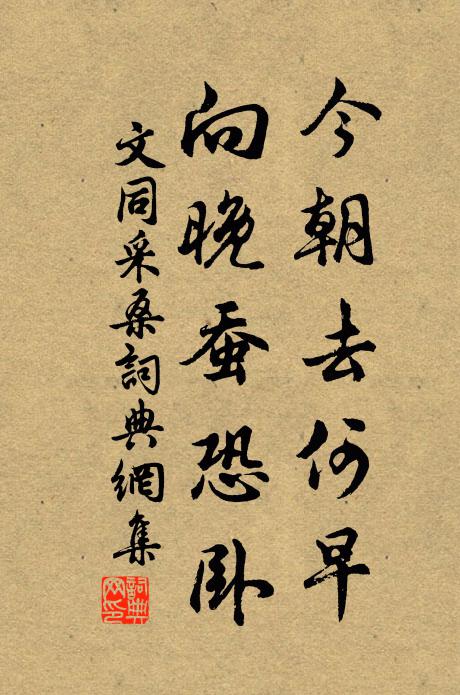 今朝去何早
向晚蚕恐卧
文同采桑詞典網集
詞典网印